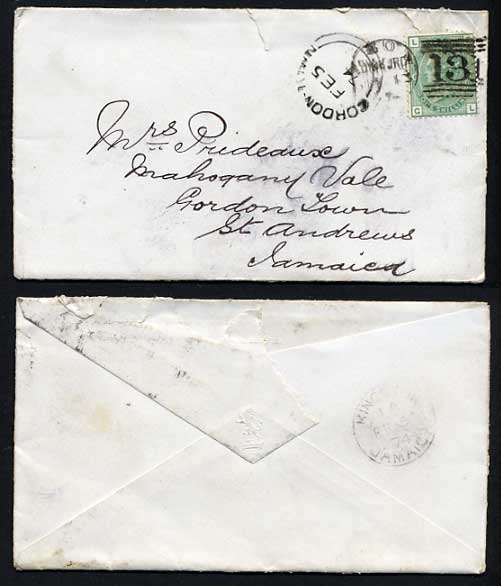 GORDON-TOWN
FE 5
13
L
C L
Mrs Prideaux
Mahogany Vale
Gordon Town
St Andrews
Jamaica
74
JAMAICA